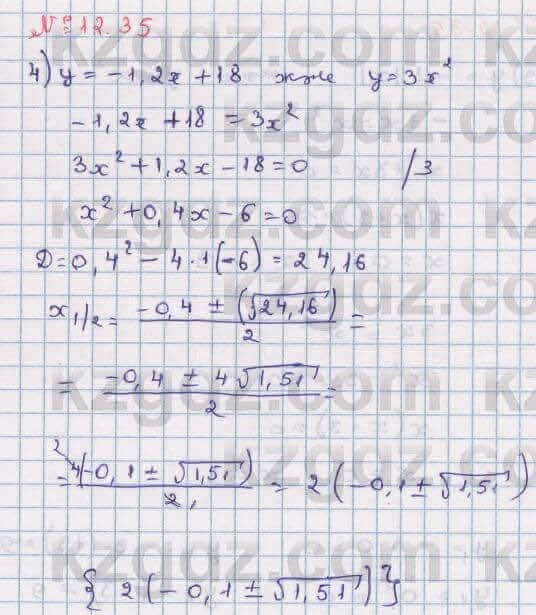 № 12.35
4) y = -1,2x + 18 және y = 3x²
-1,2x + 18 = 3x²
3x² + 1,2x - 18 = 0 /3
x² + 0,4x - 6 = 0
Д = 0,4² - 4·1(-6) = 24,16
x₁/₂ = (-0,4 ± (√24,16))/2 =
= (-0,4 ± 4√1,51)/2 =
= ²4(-0,1 ± √1,51)/2, = 2(-0,1 ± √1,51)
{ 2(-0,1 ± √1,51)² }
kzgdz.com